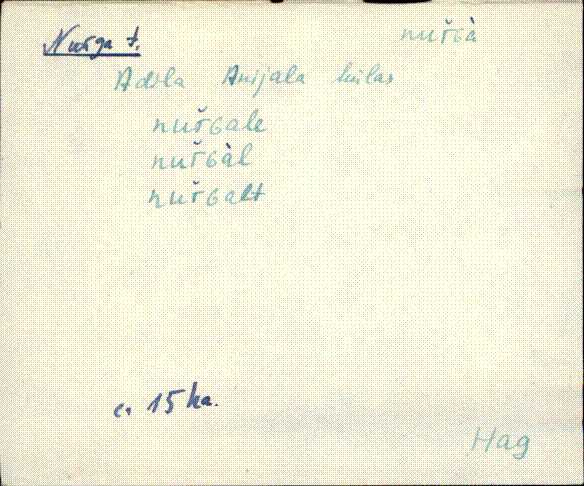 Nurga t.
nuřɢà
Adila Anijala külas
nuřɢale
nuřɢàl
nuřɢalt
c. 15 ha.
Hag